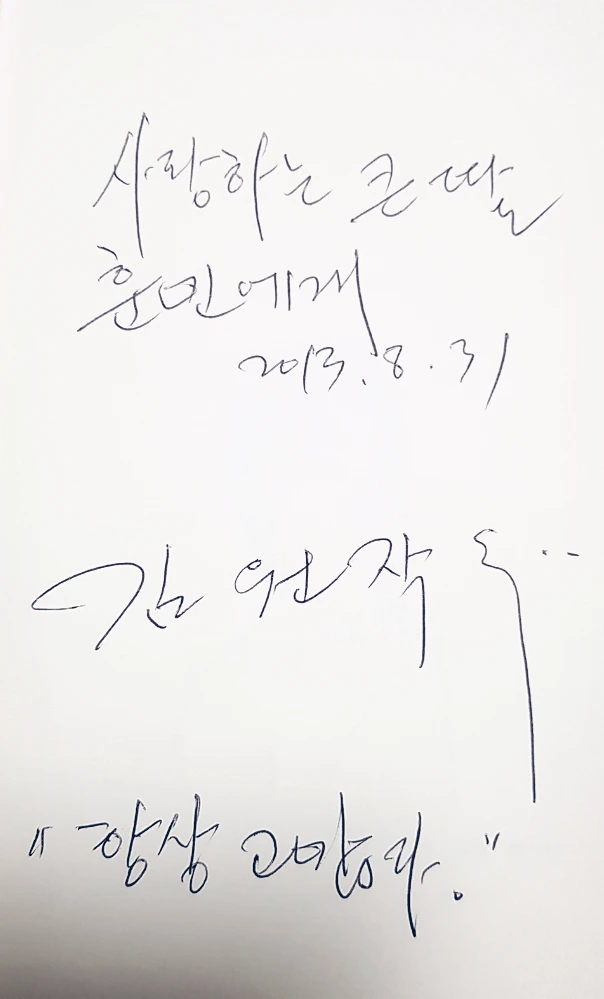 사랑하는 큰 딸
훈민에게
2013. 8. 31
김원작
"항상 고맙다."